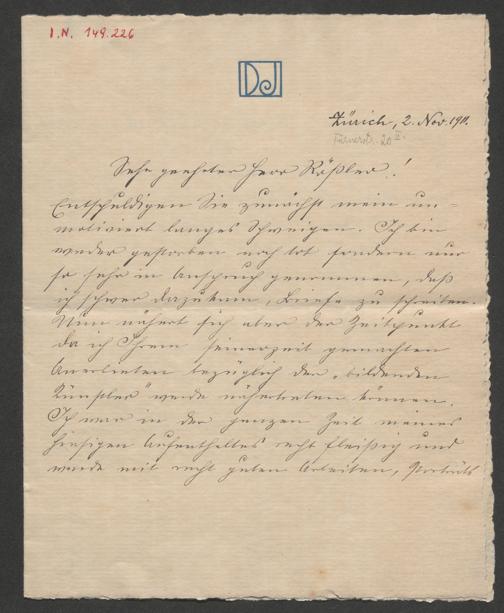 I.N. 149.226
DJ
Zürich, 2. Nov. 1911.
20 II.
Sehr geehrter Herr Rößler!
Entschuldigen Sie zunächst mein un-
motiviert langes Schweigen. Ich bin
weder gestorben noch tot sondern nur
so sehr in Anspruch genommen, daß
ich schwer dazukam, Briefe zu schreiben.
Nun nähert sich aber der Zeitpunkt
da ich Ihrem seinerzeit gemachten
Anerbieten bezüglich der „bildenden
Künstler" werde nähertreten können.
Ich war in der ganzen Zeit meines
hiesigen Aufenthaltes recht fleißig und
werde mit recht guten Arbeiten, Porträts